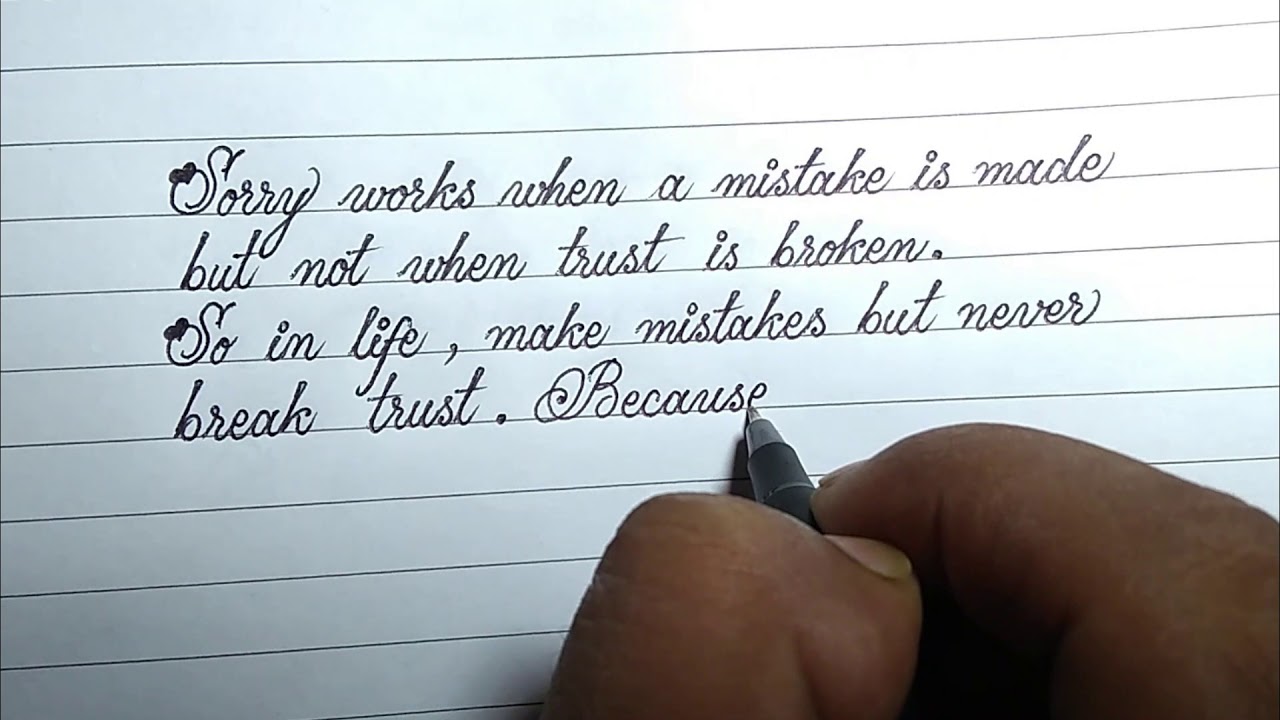 Sorry works when a mistake is made
but not when trust is broken.
So in life, make mistakes but never
break trust. Because